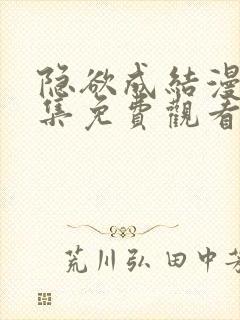 隐欲成结漫
集免費觀看
荒川弘 田中芳